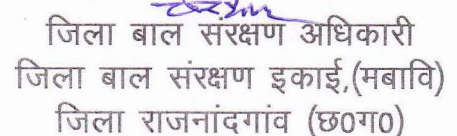 जिला बाल संरक्षण अधिकारी
जिला बाल संरक्षण इकाई,(मबावि)
जिला राजनांदगांव (छ0ग0)